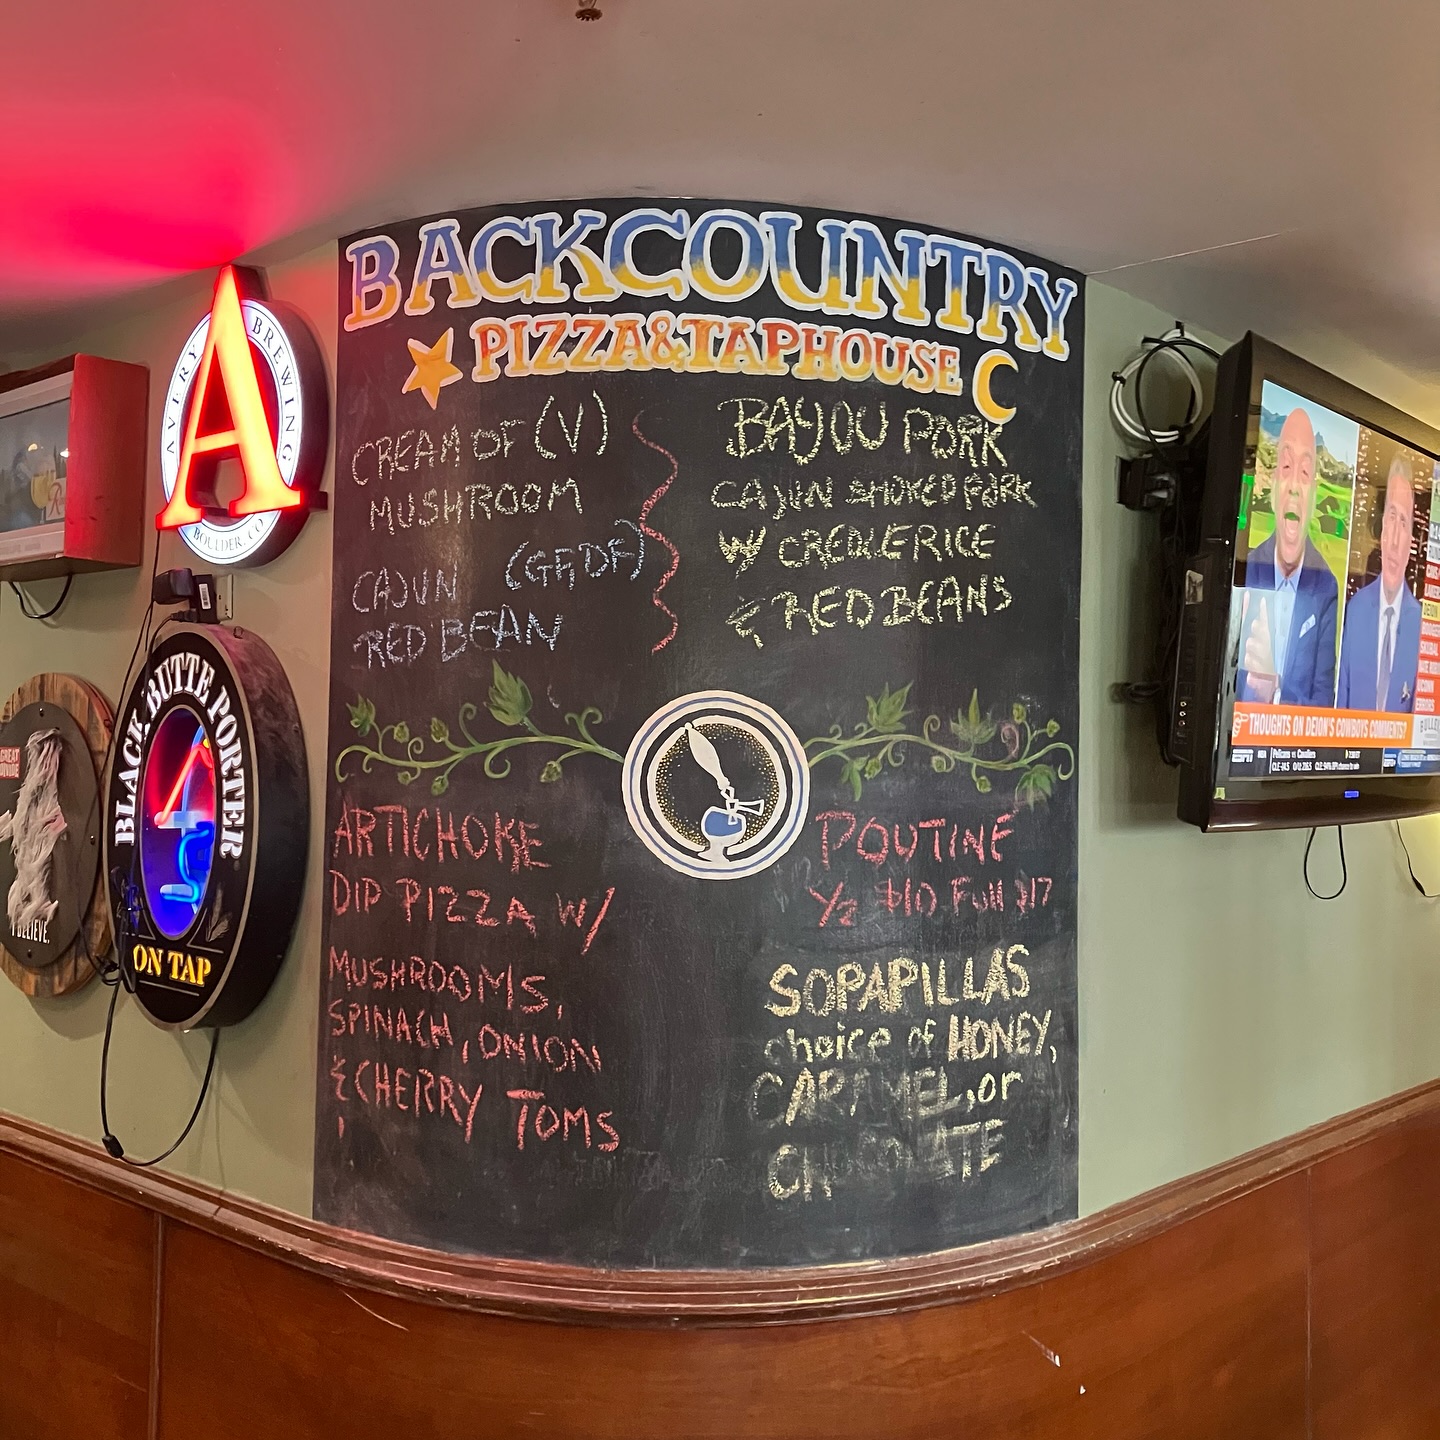 BACKCOUNTRY
PIZZA & TAPHOUSE
CREAM OF (V)
MUSHROOM
CAJUN (GF, DF)
RED BEAN
BAYOU PORK
CAJUN SMOKED PORK
W/ CREOLE RICE
& RED BEANS
ARTICHOKE
DIP PIZZA W/
MUSHROOMS,
SPINACH, ONION
& CHERRY TOMS
POUTINE
1/2 $10 Full $17
SOPAPILLAS
choice of HONEY,
CARAMEL, or
CHOCOLATE
AVERY BREWING
A
BOULDER, CO
BLACK BUTTE PORTER
ON TAP
GREAT
DIVIDE
I BELIEVE.
THOUGHTS ON DEION'S COWBOYS COMMENTS?
ESPN
NBA
Pelicans vs Cavaliers
ESPN